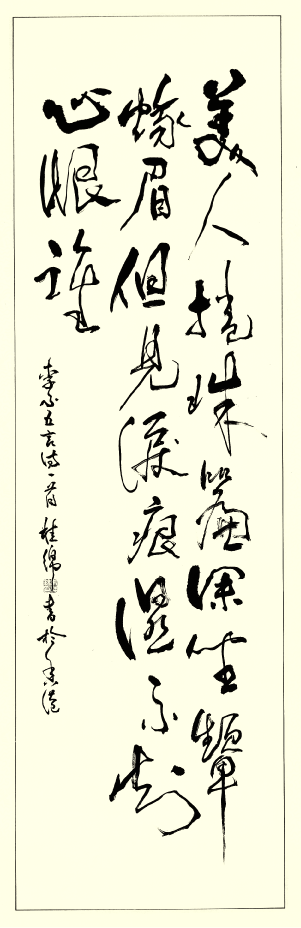 美人捲珠簾深坐顰
蛾眉但見淚痕濕不知
心恨誰
李白五言詩一首 書於香港